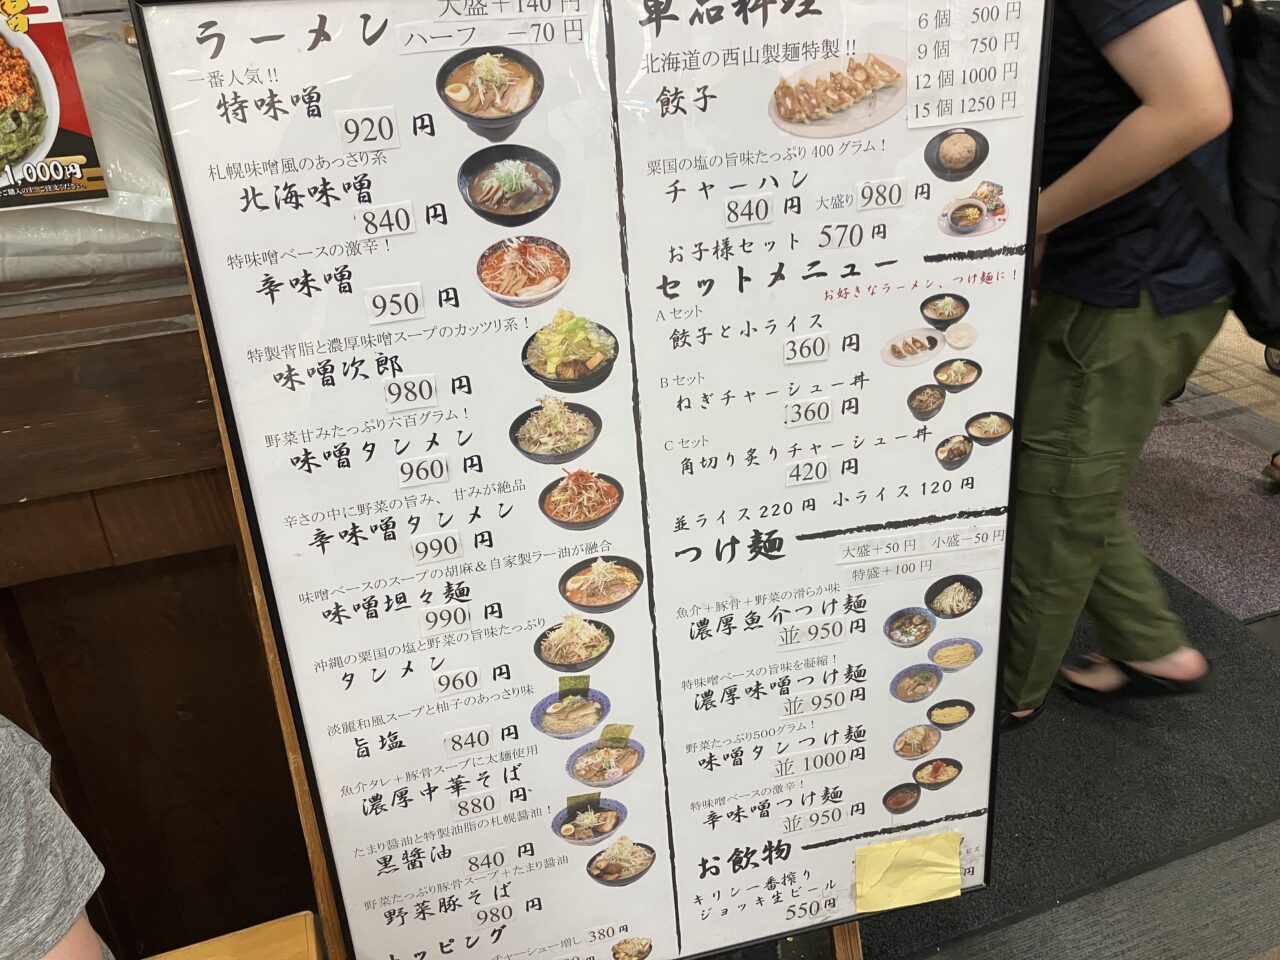 1,000円
ラーメン
大盛+140円
ハーフ －70円
一番人気!!
特味噌
920円
札幌味噌風のあっさり系
北海味噌
840円
特味噌ベースの激辛！
辛味噌
950円
特製背脂と濃厚味噌スープのカッツリ系！
味噌次郎
980円
野菜甘みたっぷり六百グラム！
味噌タンメン
960円
辛さの中に野菜の旨み、甘みが絶品
辛味噌タンメン
990円
味噌ベースのスープの胡麻＆自家製ラー油が融合
味噌坦々麺
990円
沖縄の粟国の塩と野菜の旨味たっぷり
タンメン
960円
淡麗和風スープと柚子のあっさり味
旨塩
840円
魚介タレ＋豚骨スープに太麺使用
濃厚中華そば
880円
たまり醤油と特製油脂の札幌醤油！
黒醤油
840円
野菜たっぷり豚骨スープ＋たまり醤油
野菜豚そば
980円
トッピング
チャーシュー増し 380円
単品料理
北海道の西山製麺特製!!
餃子
6個 500円
9個 750円
12個 1000円
15個 1250円
粟国の塩の旨味たっぷり400グラム！
チャーハン
840円 大盛り 980円
お子様セット 570円
セットメニュー
お好きなラーメン、つけ麺に！
Aセット
餃子と小ライス
360円
Bセット
ねぎチャーシュー丼
360円
Cセット
角切り炙りチャーシュー丼
420円
並ライス220円 小ライス120円
つけ麺
大盛＋50円 小盛－50円
特盛＋100円
魚介＋豚骨＋野菜の滑らか味
濃厚魚介つけ麺
並950円
特味噌ベースの旨味を凝縮！
濃厚味噌つけ麺
並950円
野菜たっぷり500グラム！
味噌タンつけ麺
並1000円
特味噌ベースの激辛！
辛味噌つけ麺
並950円
お飲物
キリン一番搾り
ジョッキ生ビール
550円
円